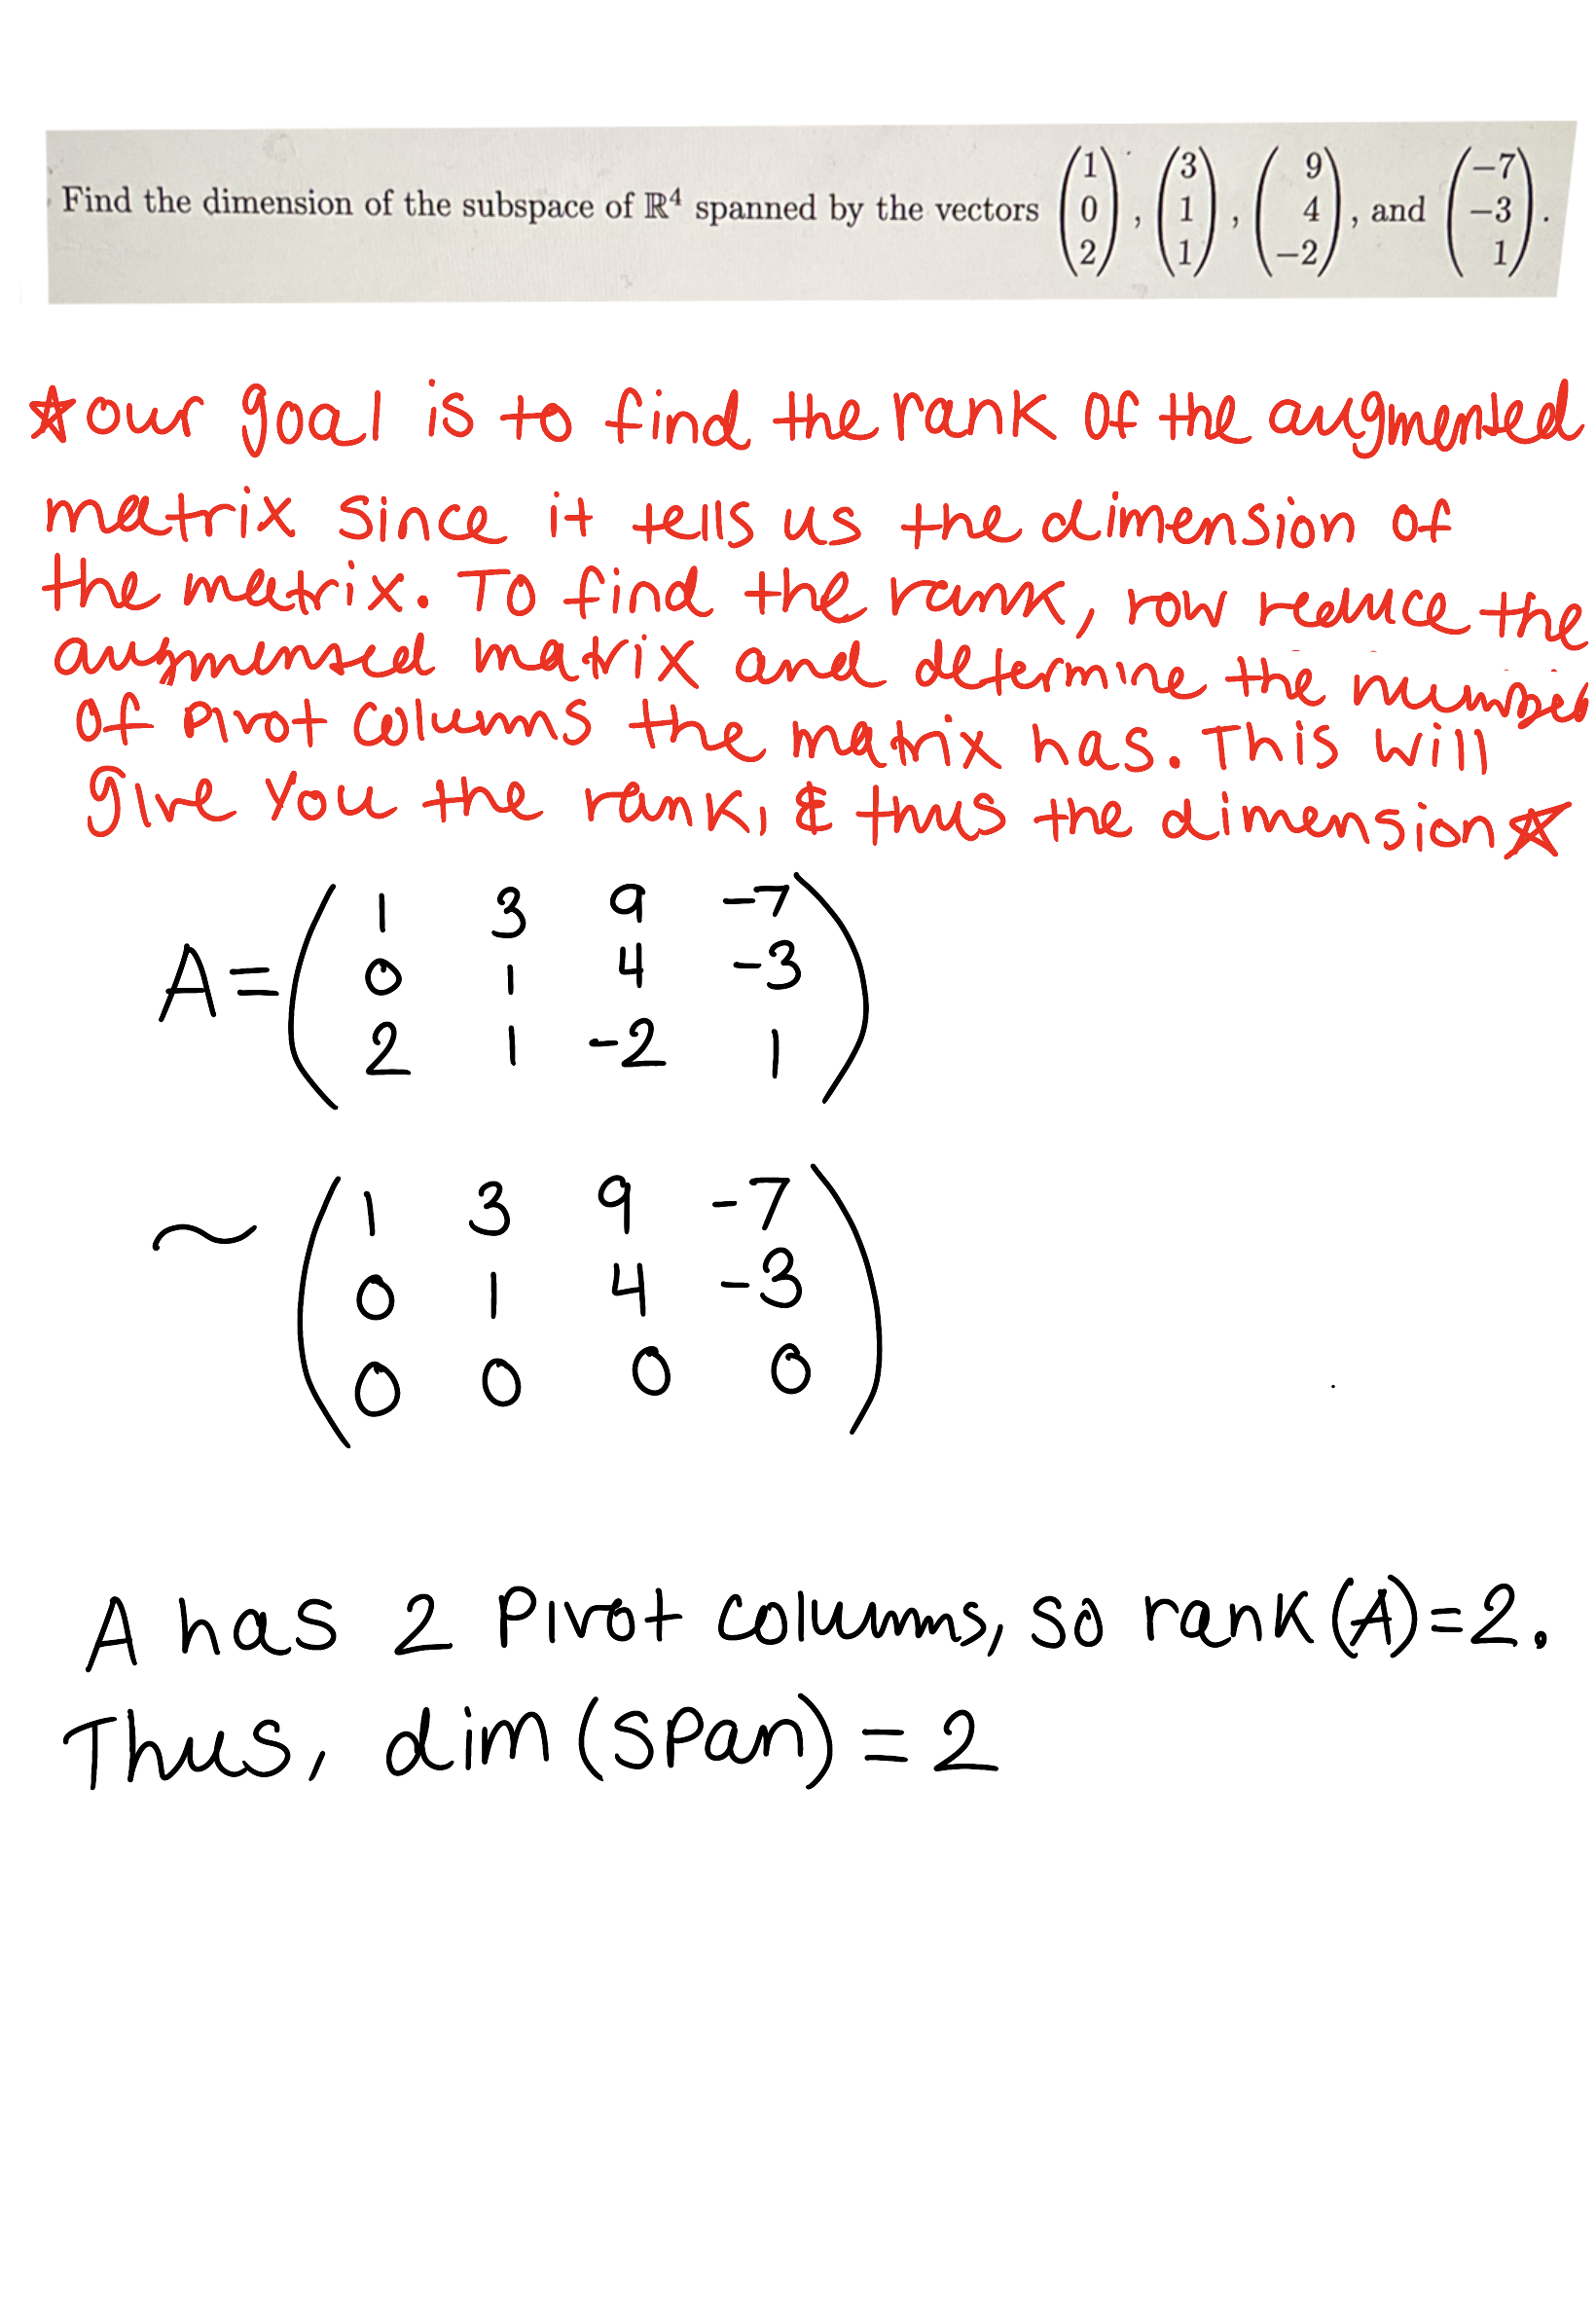 Find the dimension of the subspace of ℝ⁴ spanned by the vectors (1 0 2), (3 1 1), (9 4 −2), and (−7 −3 1).
☆our goal is to find the rank of the augmented
matrix since it tells us the dimension of
the matrix. To find the rank, row reduce the
augmented matrix and determine the number
of pivot columns the matrix has. This will
give you the rank, & thus the dimension☆
A=( 1 3 9 -7
0 1 4 -3
2 1 -2 1 )
~ ( 1 3 9 -7
0 1 4 -3
0 0 0 0 )
A has 2 pivot columns, so rank(A)=2.
Thus, dim(span)=2